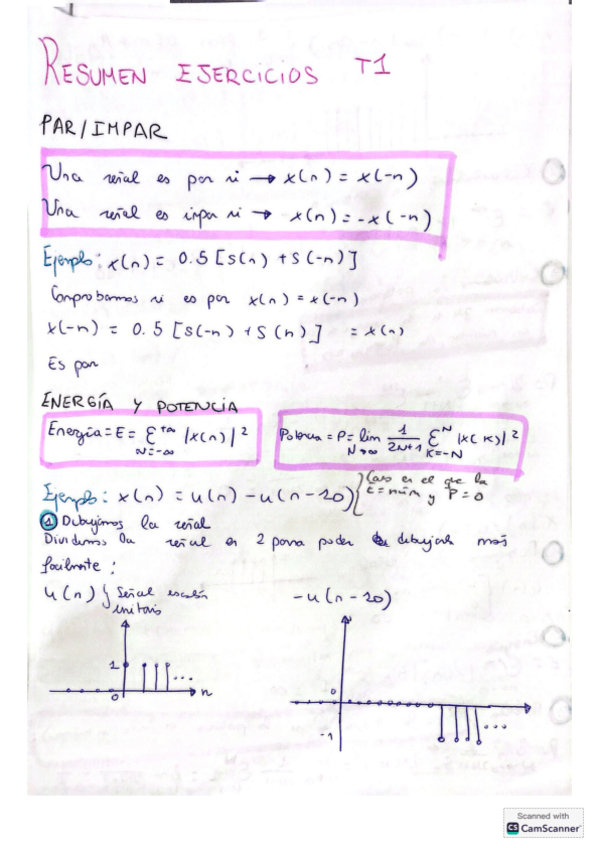 RESUMEN EJERCICIOS T1
PAR/IMPAR
Una señal es par si → x(n) = x(-n)
Una señal es impar si → x(n) = -x(-n)
Ejemplo: x(n) = 0.5 [S(n) + S(-n)]
Comprobamos si es par x(n) = x(-n)
x(-n) = 0.5 [S(-n) + S(n)] = x(n)
Es par
ENERGÍA Y POTENCIA
Energía = E = Σ +∞ n=-∞ |x(n)|²
Potencia = P = lim N→∞ 1/2N+1 Σ N K=-N |x(K)|²
Ejemplo: x(n) = u(n) - u(n-10) } Caso en el que la
E = núm y P = 0
① Dibujamos la señal
Dividimos la señal en 2 para poder dibujarla más
fácilmente:
u(n) } Señal escalón
unitario
-u(n-10)
1
...
0
n
0
-1
...
Scanned with
CS CamScanner